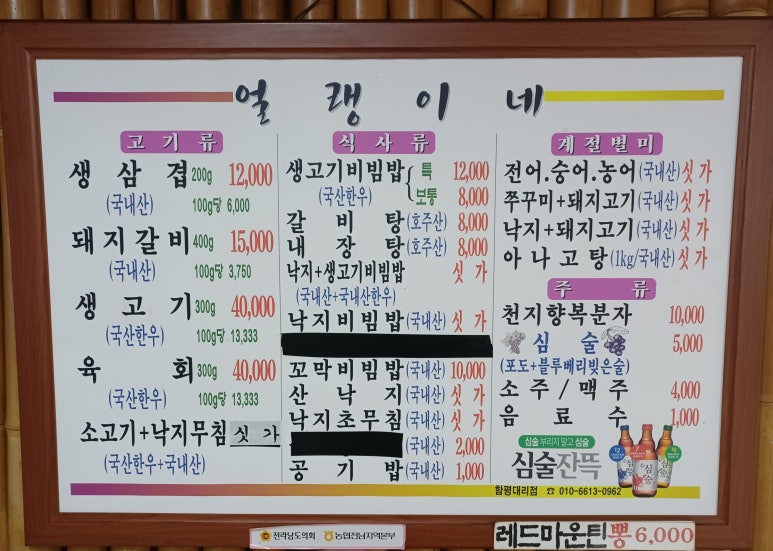 얼랭이네
고기류
생삼겹 200g 12,000
(국내산) 100g당 6,000
돼지갈비 400g 15,000
(국내산) 100g당 3,750
생고기 300g 40,000
(국산한우) 100g당 13,333
육회 300g 40,000
(국산한우) 100g당 13,333
소고기+낙지무침 싯가
(국산한우+국내산)
식사류
생고기비빔밥 특 12,000
(국산한우) 보통 8,000
갈비탕 (호주산) 8,000
내장탕 (호주산) 8,000
낙지+생고기비빔밥 싯가
(국내산+국내산한우)
낙지비빔밥 (국내산) 싯가
꼬막비빔밥 (국내산) 10,000
산낙지 (국내산) 싯가
낙지초무침 (국내산) 싯가
(국내산) 2,000
공기밥 (국내산) 1,000
계절별미
전어.숭어.농어 (국내산) 싯가
쭈꾸미+돼지고기 (국내산) 싯가
낙지+돼지고기 (국내산) 싯가
아나고탕 (1kg/국내산) 싯가
주류
천지향복분자 10,000
심술 5,000
(포도+블루베리빚은술)
소주/맥주 4,000
음료수 1,000
심술 부리지 말고 심술
심술잔뜩
함평대리점 ☎ 010-6613-0962
전라남도의회 농협전남지역본부
레드마운틴뽕 6,000